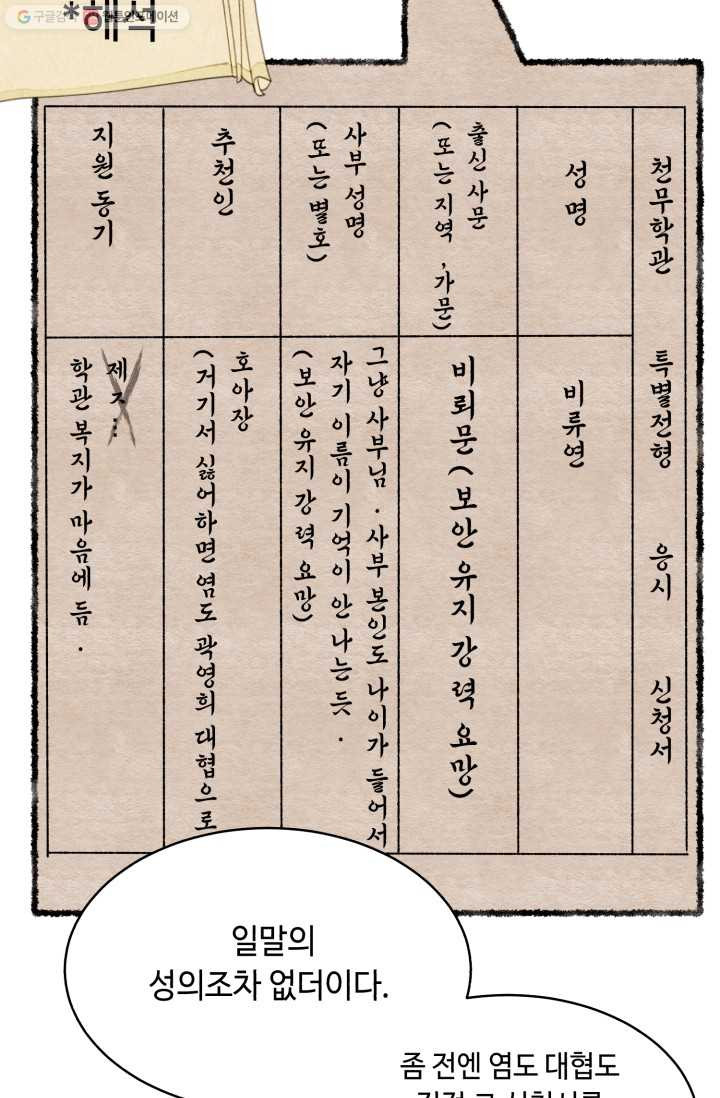 구글검
*해석
천무학관 특별전형 응시 신청서
성명
비류연
출신 사문
(또는 지역, 가문)
비뢰문(보안 유지 강력 요망)
사부 성명
(또는 별호)
그냥 사부님. 사부 본인도 나이가 들어서
자기 이름이 기억이 안 나는 듯.
(보안 유지 강력 요망)
추천인
호아장
(거기서 싫어하면 염도 곽영희 대협으로
지원 동기
제ㅈ...
학관 복지가 마음에 듬.
일말의
성의조차 없더이다.
좀 전엔 염도 대협도